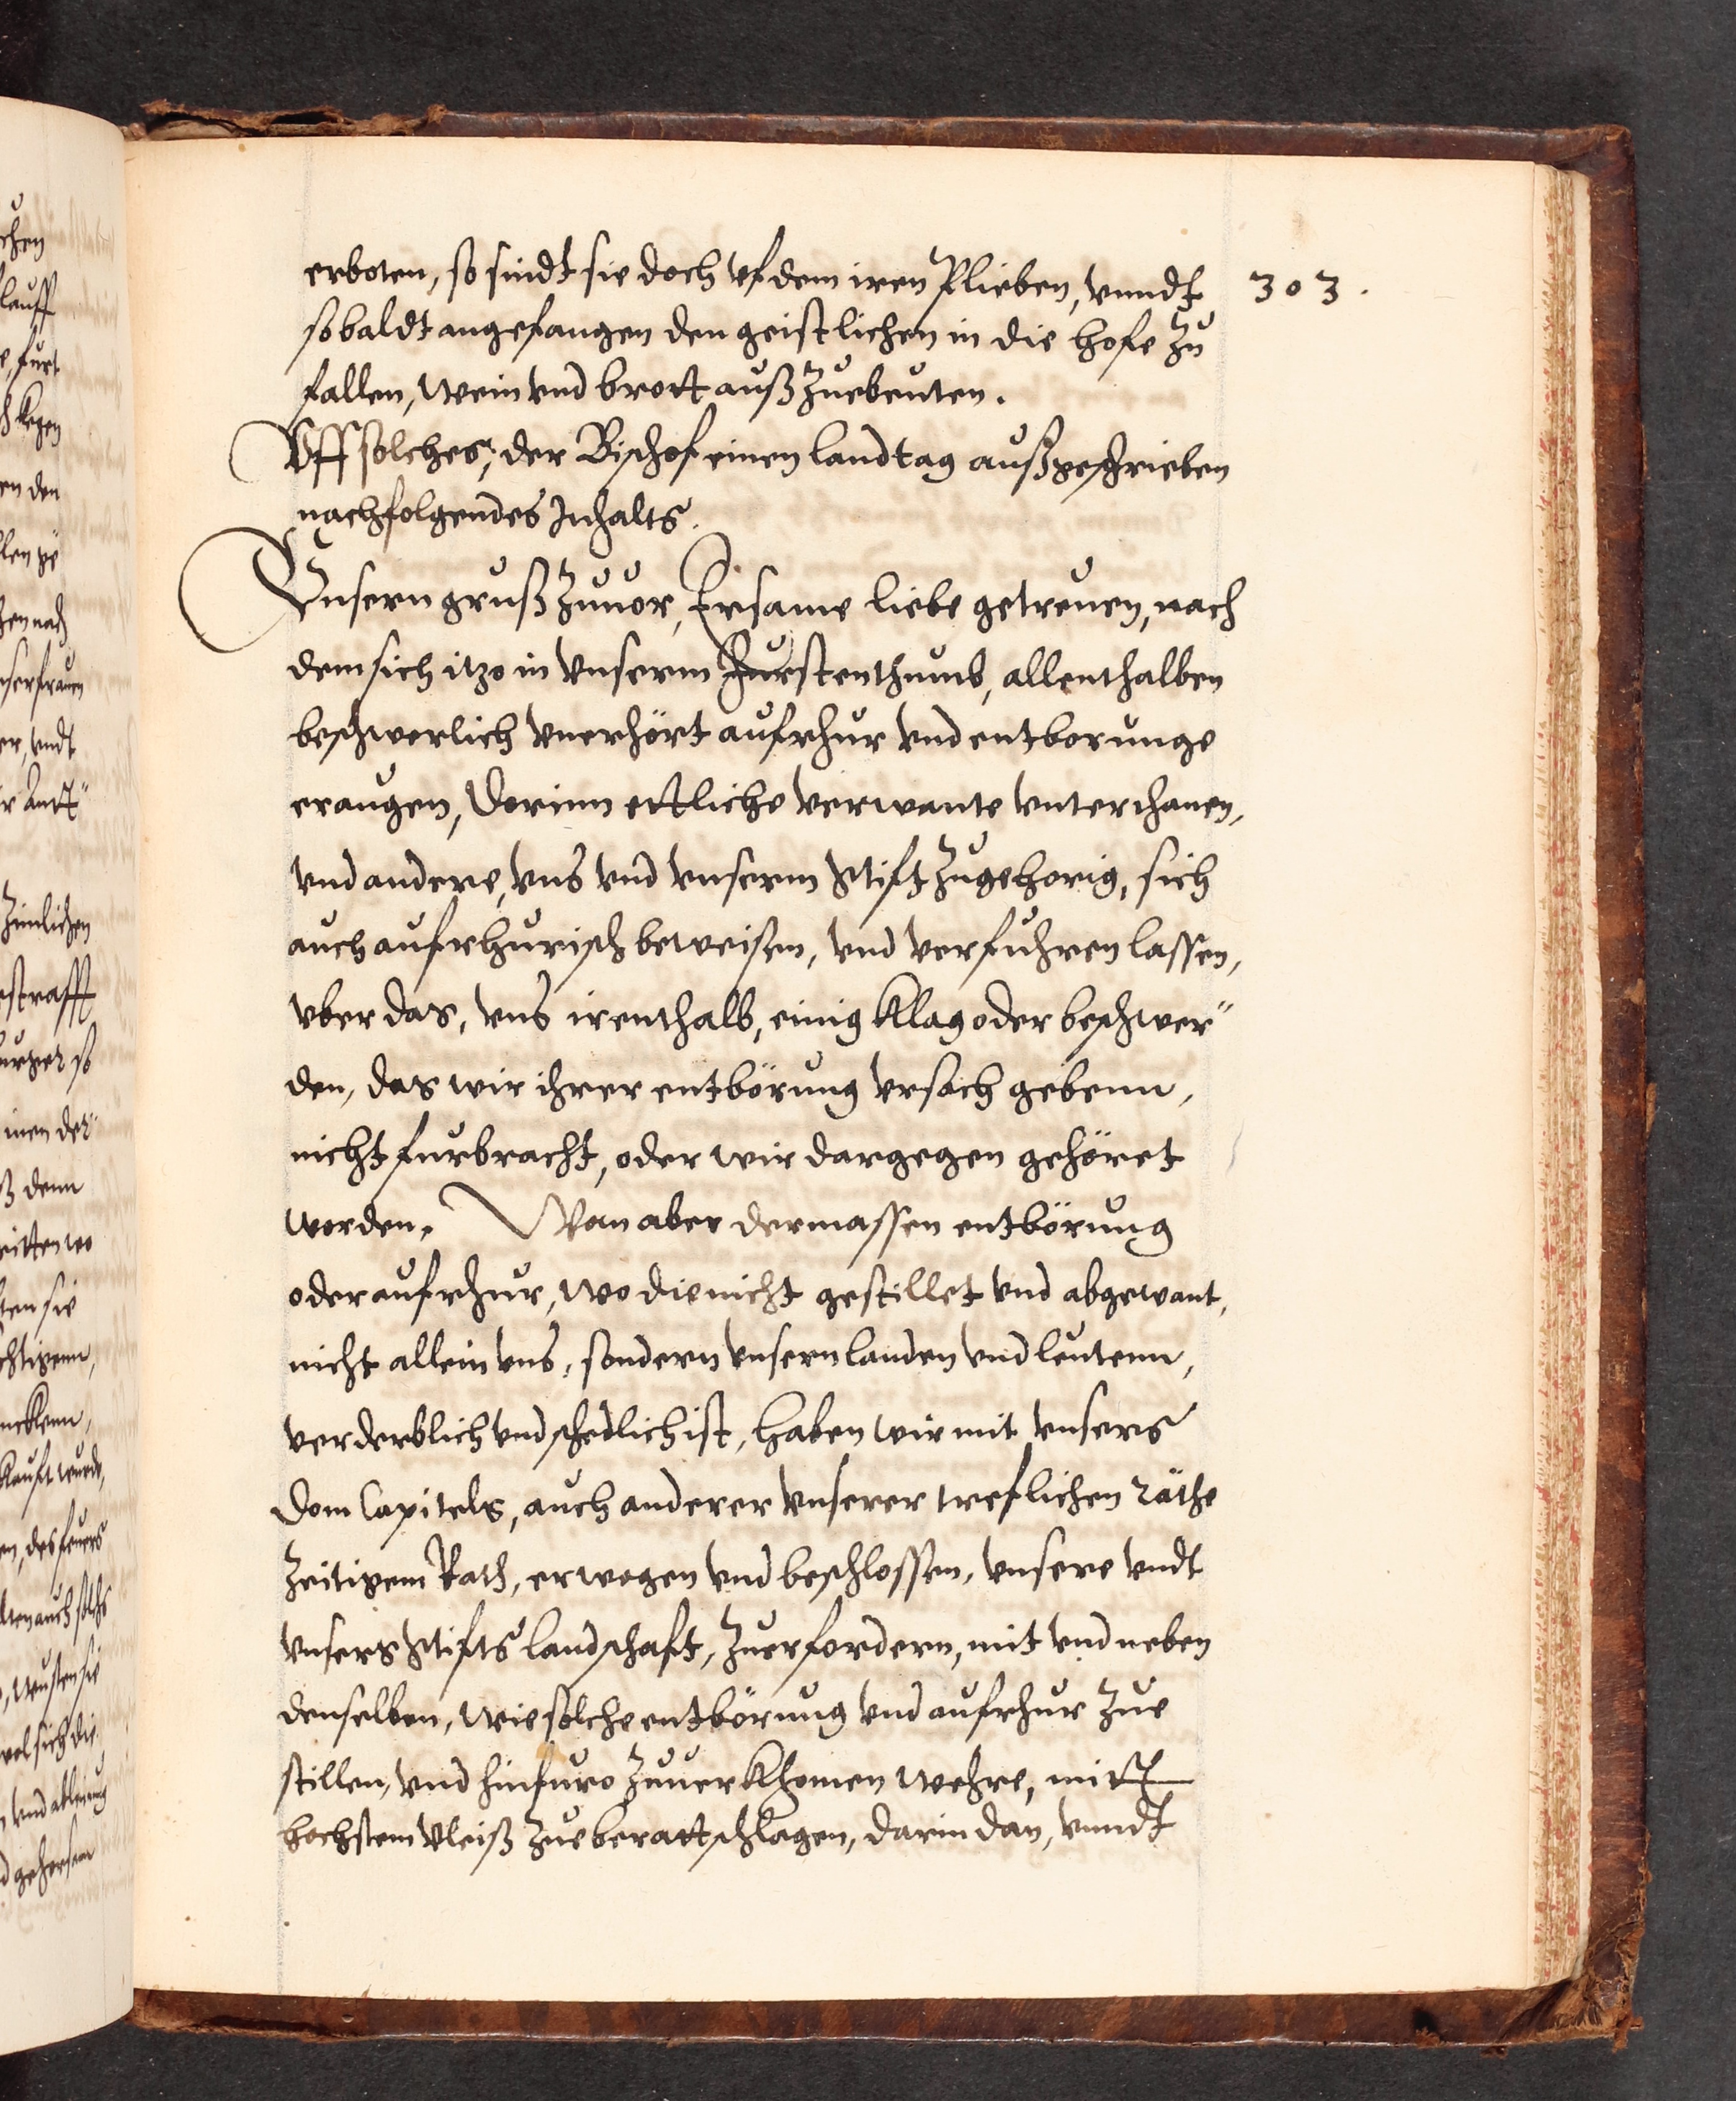 erboten, so sindt sie doch vf dem iren Plieben, vnndt
303.
sobaldt angefangen den geistlichen in die hofe zu
fallen, wein vnd brott auß zuebeuten.
Vff solches, der Bischof einen landtag außgeschrieben
nachfolgendes Inhalts.
Vnsern gruß zuuor, Ersame liebe getreuen, nach
dem sich itzo in vnserm Furstenthumb, allenthalben
beschwerlich vnerhört aufrhur vnd entborunge
eraugen, Dorinn ettliche verwante vnterthanen,
vnd andere, vns vnd vnserm Stift zugehorig, sich
auch aufrhurisch beweisen, vnd verfuhren lassen,
vber das, vns irenthalb, einig klag oder beschwer"
den, das wir ihrer entbörung vrsach gebenn,
nicht furbracht, oder wir dargegen gehöret
worden. Wan aber dermassen entbörung
oder aufrhur, wo die nicht gestillet vnd abgewant,
nicht allein vns, sondern vnsern landen vnd leutenn,
verderblich vnd schedlich ist, haben wir mit vnsers
Dom Capitels, auch anderer vnserer treflichen räthe
zeitigem Rath, erwogen vnd beschlossen, vnsere vndt
vnsers Stifts landschaft, zuerfordern, mit vnd neben
denselben, wie solche entbörung vnd aufrhur zue
stillen, vnd hinfuro zuuerkhomen wehre, mitt
hochstem vleiß zueberattschlagen, darin dan, vnndt